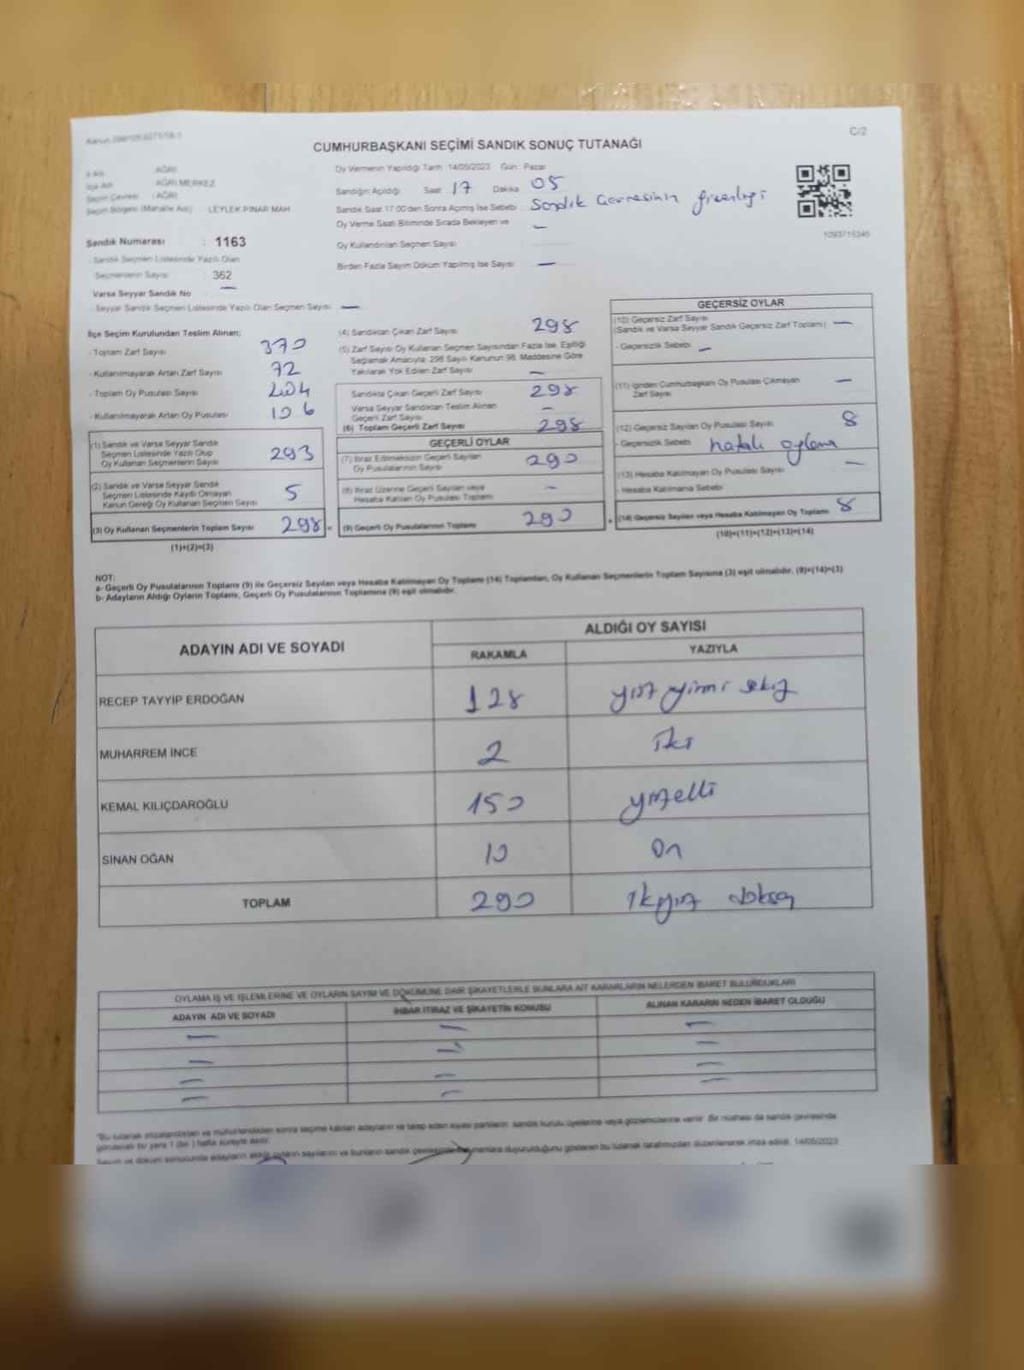 C/2
CUMHURBAŞKANI SEÇİMİ SANDIK SONUÇ TUTANAĞI
İl Adı : AĞRI
İlçe Adı : AĞRI MERKEZ
Seçim Çevresi : AĞRI
Seçim Bölgesi (Mahalle Adı) : LEYLEK PINAR MAH
Oy Vermenin Yapıldığı Tarih : 14/05/2023 Gün : Pazar
Sandığın Açıldığı Saat 17 Dakika 05
Sandık Saat 17:00'den Sonra Açılmış İse Sebebi Sandık Çevresinin güvenliği
Oy Verme Saati Bitiminde Sırada Bekleyen ve —
Oy Kullandırılan Seçmen Sayısı
Birden Fazla Sayım Döküm Yapılmış İse Sayısı —
Sandık Numarası : 1163
- Sandık Seçmen Listesinde Yazılı Olan
Seçmenlerin Sayısı : 362
Varsa Seyyar Sandık No —
- Seyyar Sandık Seçmen Listesinde Yazılı Olan Seçmen Sayısı —
İlçe Seçim Kurulundan Teslim Alınan;
- Toplam Zarf Sayısı 370
- Kullanılmayarak Artan Zarf Sayısı 72
- Toplam Oy Pusulası Sayısı 404
- Kullanılmayarak Artan Oy Pusulası 106
(1) Sandık ve Varsa Seyyar Sandık
Seçmen Listesinde Yazılı Olup
Oy Kullanan Seçmenlerin Sayısı 293
(2) Sandık ve Varsa Seyyar Sandık
Seçmen Listesinde Kaydı Olmayan
Kanun Gereği Oy Kullanan Seçmen Sayısı 5
(3) Oy Kullanan Seçmenlerin Toplam Sayısı 298 =
(1)+(2)=(3)
(4) Sandıktan Çıkan Zarf Sayısı 298
(5) Zarf Sayısı Oy Kullanan Seçmen Sayısından Fazla İse, Eşitliği
Sağlamak Amacıyla, 298 Sayılı Kanunun 98. Maddesine Göre
Yakılarak Yok Edilen Zarf Sayısı —
Sandıkta Çıkan Geçerli Zarf Sayısı 298
Varsa Seyyar Sandıktan Teslim Alınan
Geçerli Zarf Sayısı —
(6) Toplam Geçerli Zarf Sayısı 298
GEÇERLİ OYLAR
(7) İtiraz Edilmeksizin Geçerli Sayılan
Oy Pusulalarının Sayısı 290
(8) İtiraz Üzerine Geçerli Sayılan veya
Hesaba Katılan Oy Pusulası Toplamı —
(9) Geçerli Oy Pusulalarının Toplamı 290 +
GEÇERSİZ OYLAR
(10) Geçersiz Zarf Sayısı
(Sandık ve Varsa Seyyar Sandık Geçersiz Zarf Toplamı) —
- Geçersizlik Sebebi —
(11) İçinden Cumhurbaşkanı Oy Pusulası Çıkmayan
Zarf Sayısı —
(12) Geçersiz Sayılan Oy Pusulası Sayısı 8
- Geçersizlik Sebebi hatalı oylama
(13) Hesaba Katılmayan Oy Pusulası Sayısı —
- Hesaba Katılmama Sebebi
(14) Geçersiz Sayılan veya Hesaba Katılmayan Oy Toplamı 8
(10)+(11)+(12)+(13)=(14)
NOT:
a- Geçerli Oy Pusulalarının Toplamı (9) ile Geçersiz Sayılan veya Hesaba Katılmayan Oy Toplamı (14) Toplamları, Oy Kullanan Seçmenlerin Toplam Sayısına (3) eşit olmalıdır. (9)+(14)=(3)
b- Adayların Aldığı Oyların Toplamı, Geçerli Oy Pusulalarının Toplamına (9) eşit olmalıdır.
ADAYIN ADI VE SOYADI
ALDIĞI OY SAYISI
RAKAMLA YAZIYLA
RECEP TAYYİP ERDOĞAN 128 yüz yirmi sekiz
MUHARREM İNCE 2 iki
KEMAL KILIÇDAROĞLU 150 yüzelli
SİNAN OĞAN 10 On
TOPLAM 290 ikiyüz doksan
OYLAMA İŞ VE İŞLEMLERİNE VE OYLARIN SAYIM VE DÖKÜMÜNE DAİR ŞİKAYETLERLE BUNLARA AİT KARARLARIN NELERDEN İBARET BULUNDUKLARI
ADAYIN ADI VE SOYADI İHBAR İTİRAZ VE ŞİKAYETİN KONUSU ALINAN KARARIN NEDEN İBARET OLDUĞU
— — —
— — —
— — —
— — —